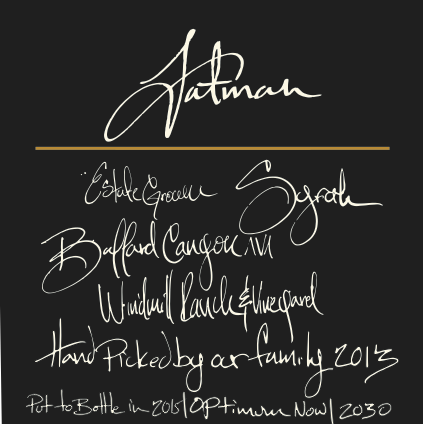 Jatman
"Estate Grown Syrah
Ballard Canyon
Windmill Ranch & Vineyard
Hand Picked by our family 2013
Put to Bottle in 2015|OPtimum Now|2030